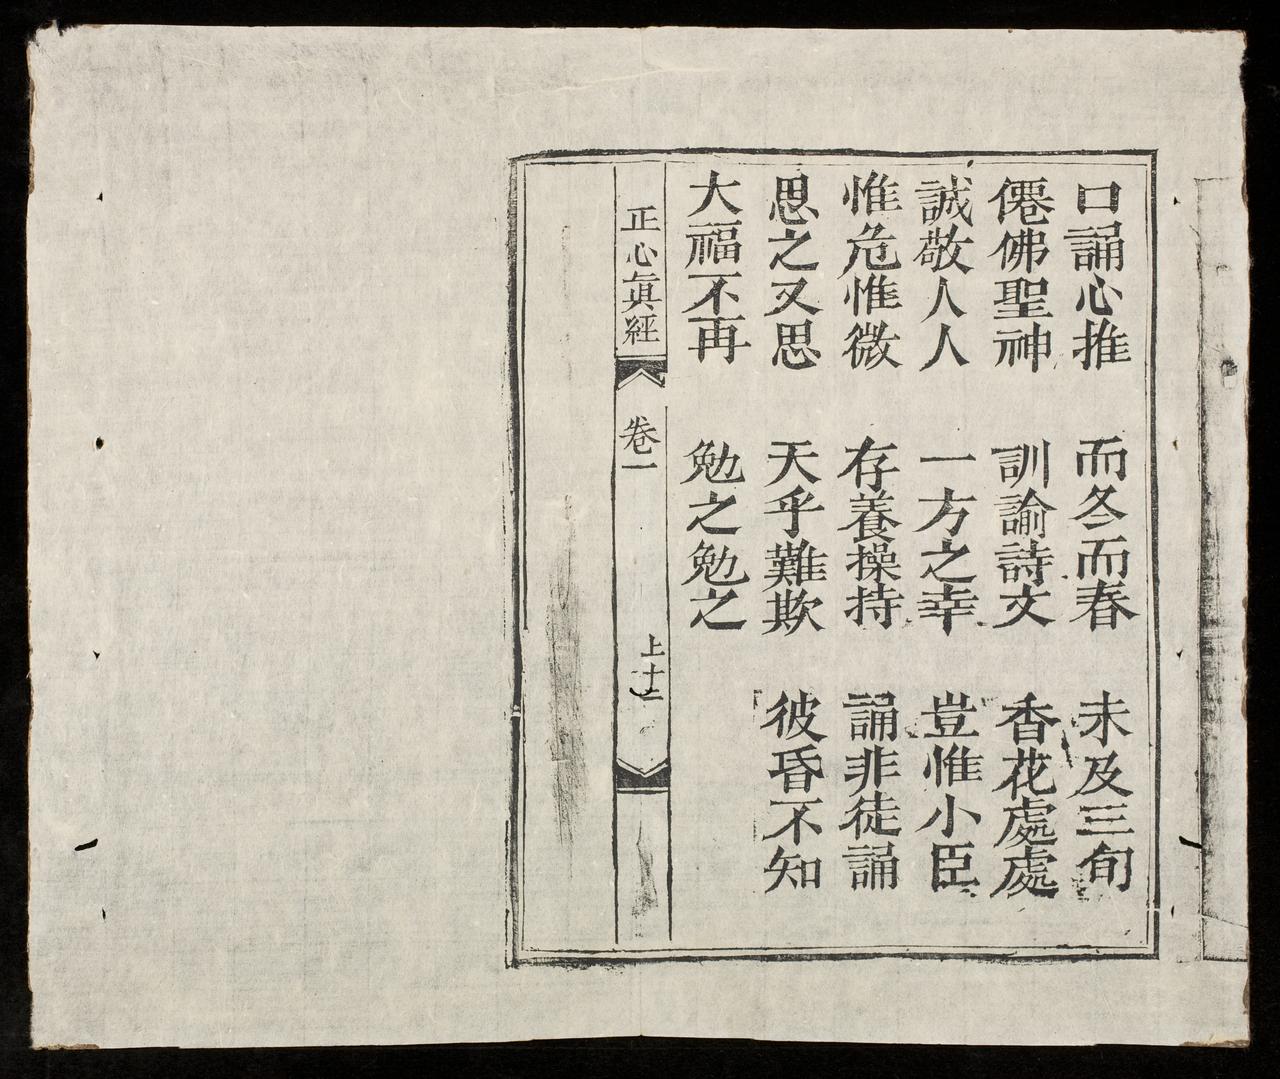 口誦心推　而冬而春　未及三旬
僊佛聖神　訓諭詩文　香花處處
誠敬人人　一方之幸　豈惟小臣
惟危惟微　存養操持　誦非徒誦
思之又思　天乎難欺　彼昏不知
大福不再　勉之勉之
正心眞經　卷一　上十二